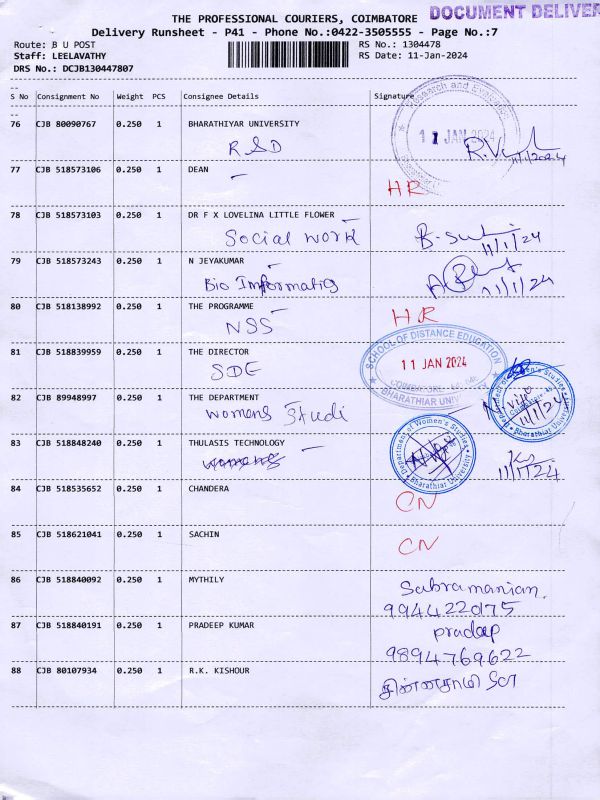 THE PROFESSIONAL COURIERS, COIMBATORE
DOCUMENT DELIVER
Delivery Runsheet - P41 - Phone No.:0422-3505555 - Page No.:7
Route: B U POST
RS No.: 1304478
Staff: LEELAVATHY
RS Date: 11-Jan-2024
DRS No.: DCJB130447807
S No Consignment No Weight PCS Consignee Details Signature
76 CJB 80090767 0.250 1 BHARATHIYAR UNIVERSITY
RSD
11 JAN 2024
11/1/2024
77 CJB 518573106 0.250 1 DEAN
HR
78 CJB 518573103 0.250 1 DR F X LOVELINA LITTLE FLOWER
Social work
11/1/24
79 CJB 518573243 0.250 1 N JEYAKUMAR
Bio Informatis
11/1/24
80 CJB 518138992 0.250 1 THE PROGRAMME
NSS
HR
81 CJB 518839959 0.250 1 THE DIRECTOR
SDE
SCHOOL OF DISTANCE EDUCATION
11 JAN 2024
82 CJB 89948997 0.250 1 THE DEPARTMENT
womens Studi
Department of Women's Studies
Bharathiar University
11/1/24
83 CJB 518848240 0.250 1 THULASIS TECHNOLOGY
Department of Women's Studies
Bharathiar University
11/1/24
84 CJB 518535652 0.250 1 CHANDERA
CN
85 CJB 518621041 0.250 1 SACHIN
CN
86 CJB 518840092 0.250 1 MYTHILY
Subramanian.
994422075
87 CJB 518840191 0.250 1 PRADEEP KUMAR
pradeep
9894769622
88 CJB 80107934 0.250 1 R.K. KISHOUR
சின்னசாமி